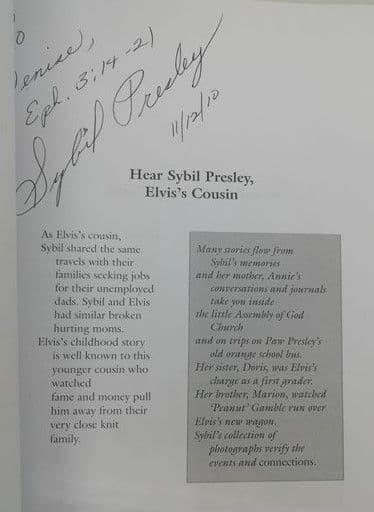 Eph. 3:14-21
Sybil Presley
11/12/10
Hear Sybil Presley,
Elvis's Cousin
As Elvis's cousin,
Sybil shared the same
travels with their
families seeking jobs
for their unemployed
dads. Sybil and Elvis
had similar broken
hurting moms.
Elvis's childhood story
is well known to this
younger cousin who
watched
fame and money pull
him away from their
very close knit
family.
Many stories flow from
Sybil's memories
and her mother, Annie's
conversations and journals
take you inside
the little Assembly of God
Church
and on trips on Paw Presley's
old orange school bus.
Her sister, Doris, was Elvis's
charge as a first grader.
Her brother, Marion, watched
'Peanut' Gamble run over
Elvis's new wagon.
Sybil's collection of
photographs verify the
events and connections.